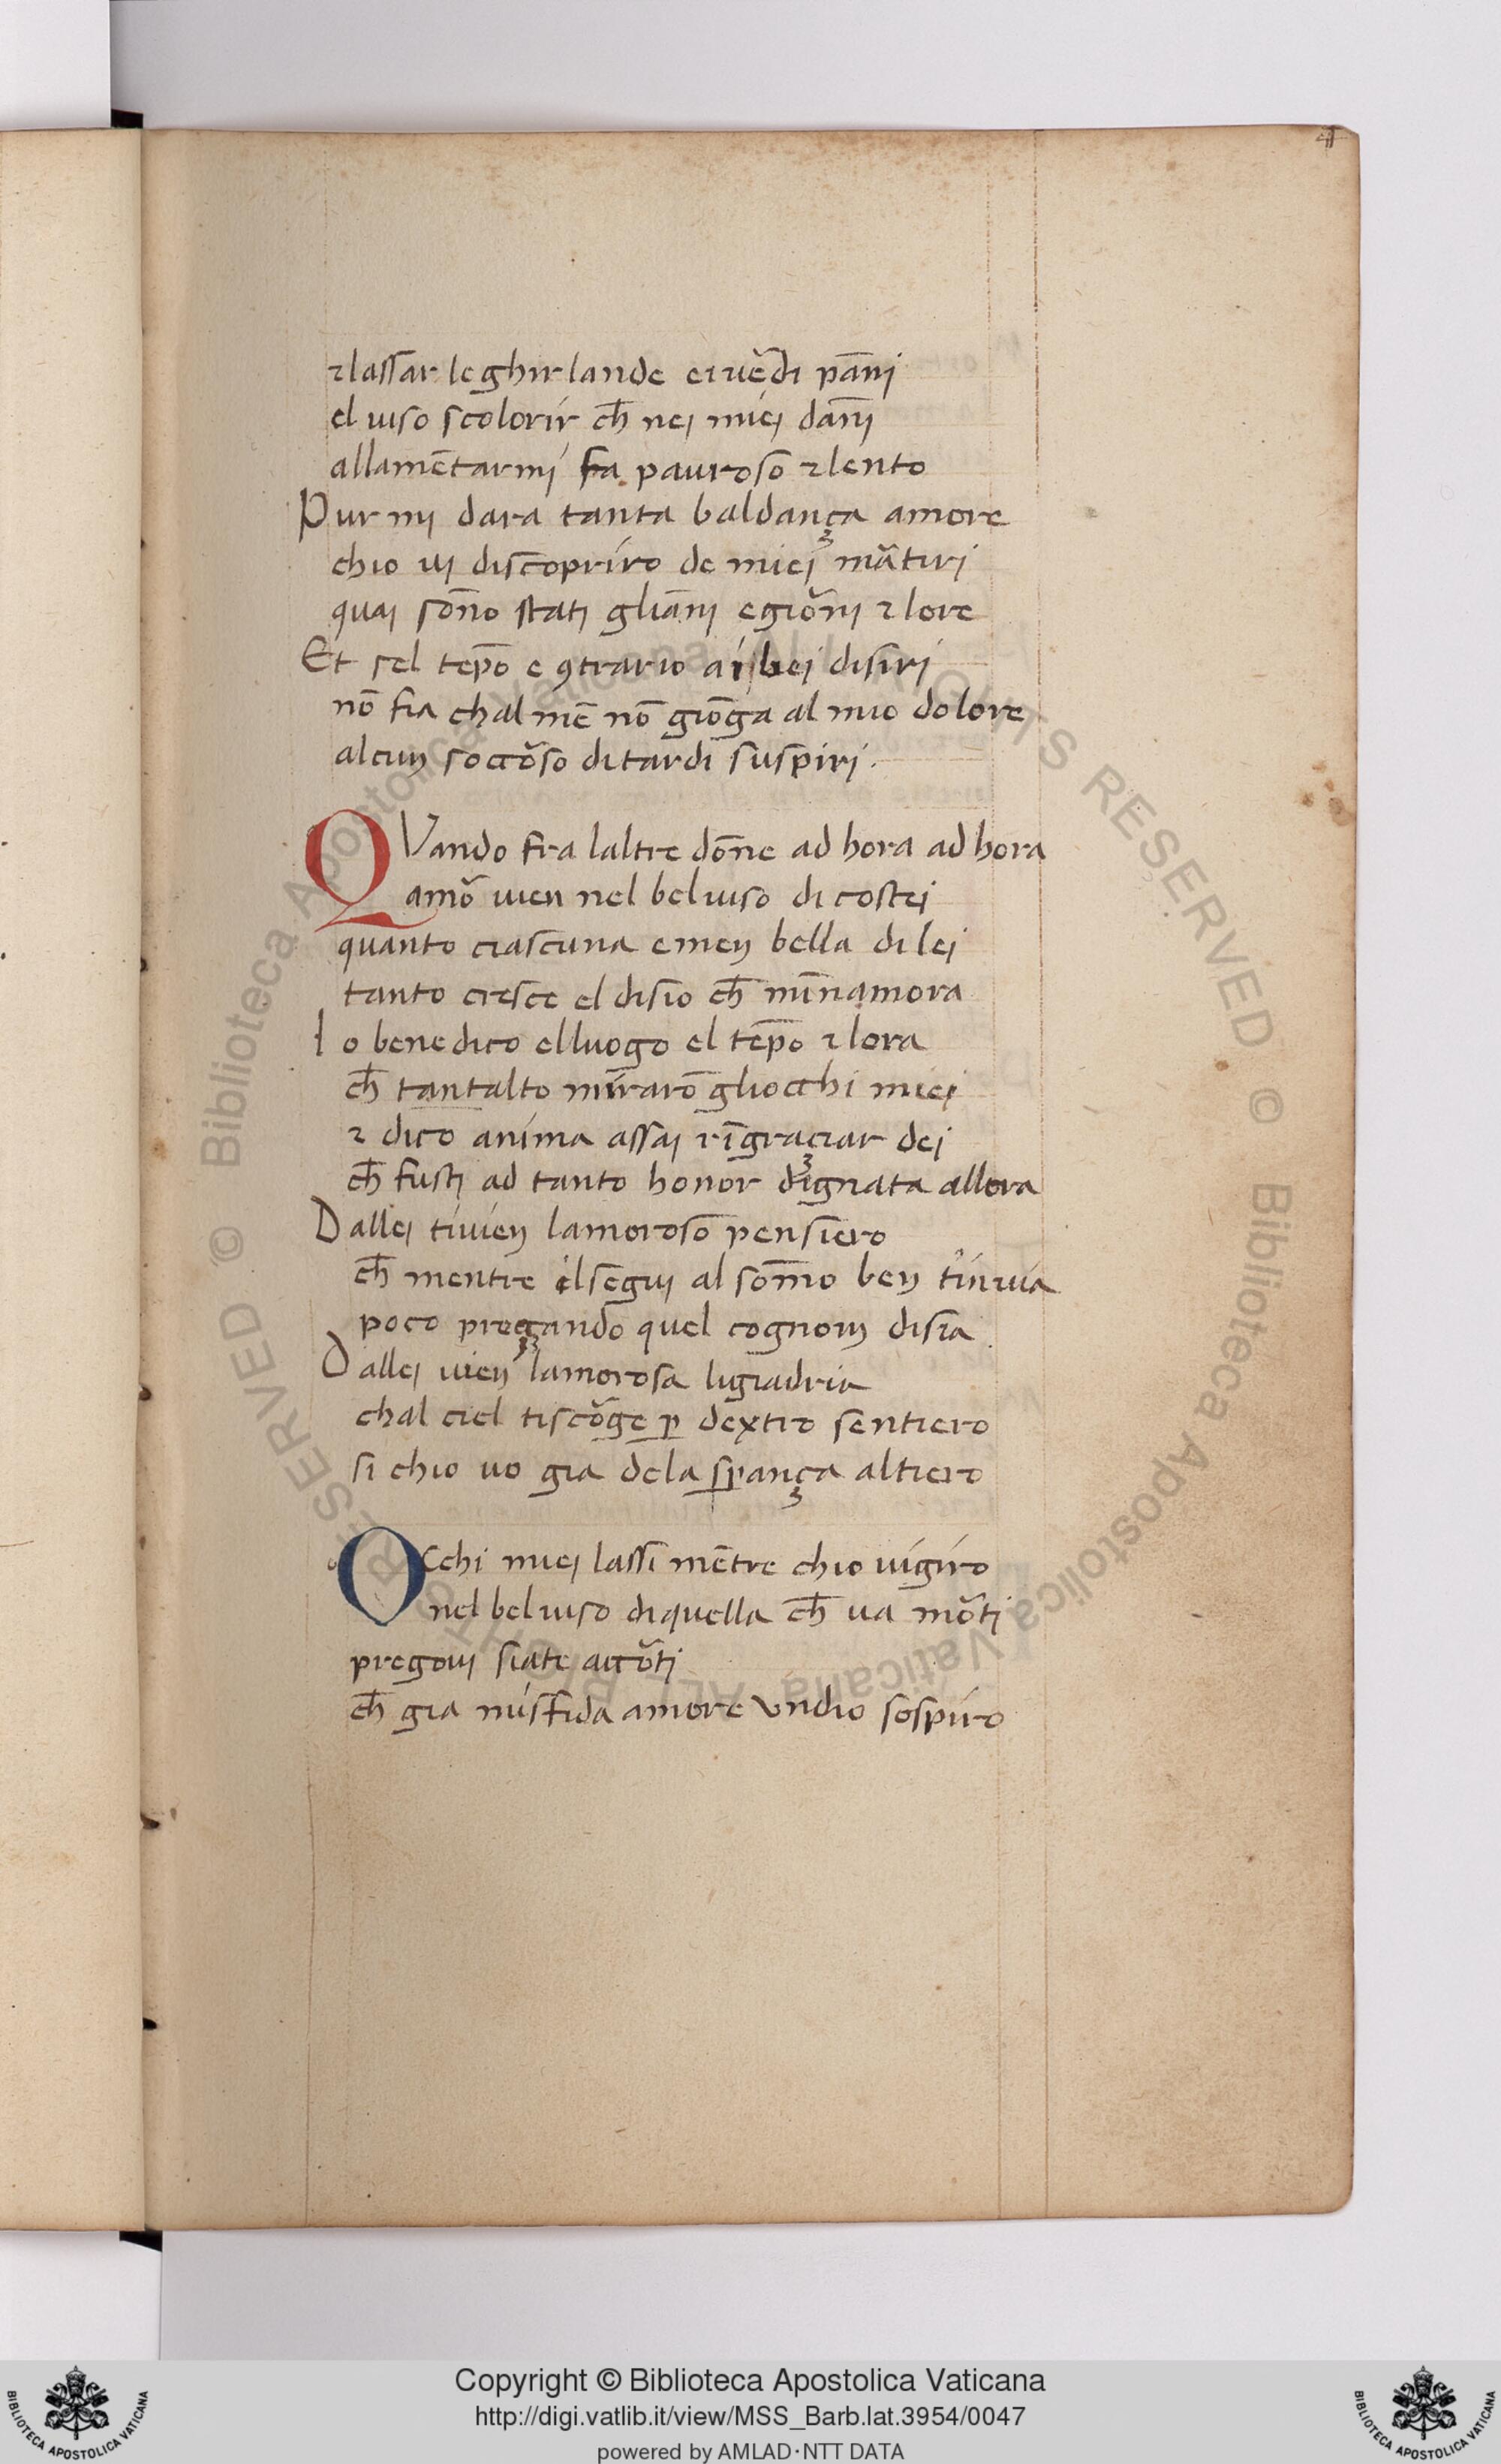 4
⁊ lassar le ghirlande ei ue᷑di pãni
el uiso scolorir ch̄ nei miei dãni
allamẽtarmi fa pauroso ⁊ lento
Pur mi dara tanta baldança amore
chio ui discopriro de miei ma᷑tiri
quai sõno stati gliãni e gio᷑ni ⁊ lore
Et sel tep̄o e ꝯtrario ai bei disiri
nõ fia chal mẽ nõ giõga al mio dolore
alcun socco᷑so di tardi suspiri.
QVando fra laltre dõne ad hora ad hora
amo᷑ uien nel bel uiso di costei
quanto ciascuna e men bella di lei
tanto cresce el disio ch̄ mĩnamora
Io benedico el luogo el tep̄o ⁊ lora
ch̄ tantalto mirarõ gliocchi miei
⁊ dico anima assai rĩgraçiar dei
ch̄ fusti ad tanto honor dignata allora
Dallei tiuien lamoroso pensiero
ch̄ mentre il segui al sõmo ben tinuia
poco preçando quel cognom disia
Dallei uien lamorosa ligiadria
chal ciel tisco᷑ge ꝑ dextro sentiero
si chio uo gia dela sꝑança altiero
Occhi miei lassi mẽtre chio uigiro
nel bel uiso di quella ch̄ ua mo᷑ti
pregoui siate acco᷑ti
ch̄ gia misfida amore vndio sospiro
© Biblioteca Apostolica Vaticana ALL RIGHTS RESERVED © Biblioteca Apostolica Vaticana ALL RIGHTS RESERVED
Copyright © Biblioteca Apostolica Vaticana
http://digi.vatlib.it/view/MSS_Barb.lat.3954/0047
powered by AMLAD·NTT DATA
BIBLIOTECA APOSTOLICA VATICANA
BIBLIOTECA APOSTOLICA VATICANA